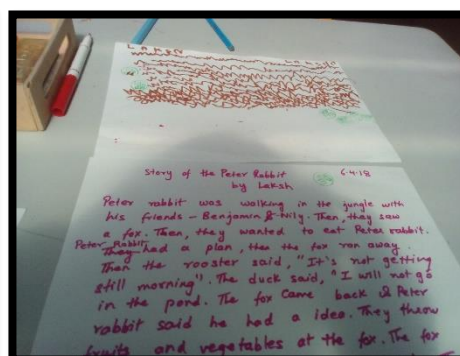 LAKSH
LAKSH
Story of the Peter Rabbit 6-4-18
by Laksh
Peter rabbit was walking in the jungle with
his friends - Benjamin & Nily. Then, they saw
a fox. Then, they wanted to eat Peter rabbit.
Peter Rabbit
They had a plan, then the fox ran away.
Then the rooster said, "It's not getting
still morning". The duck said, "I will not go
in the pond. The fox came back & Peter
rabbit said he had a idea. They throw
fruits and vegetables at the fox. The fox